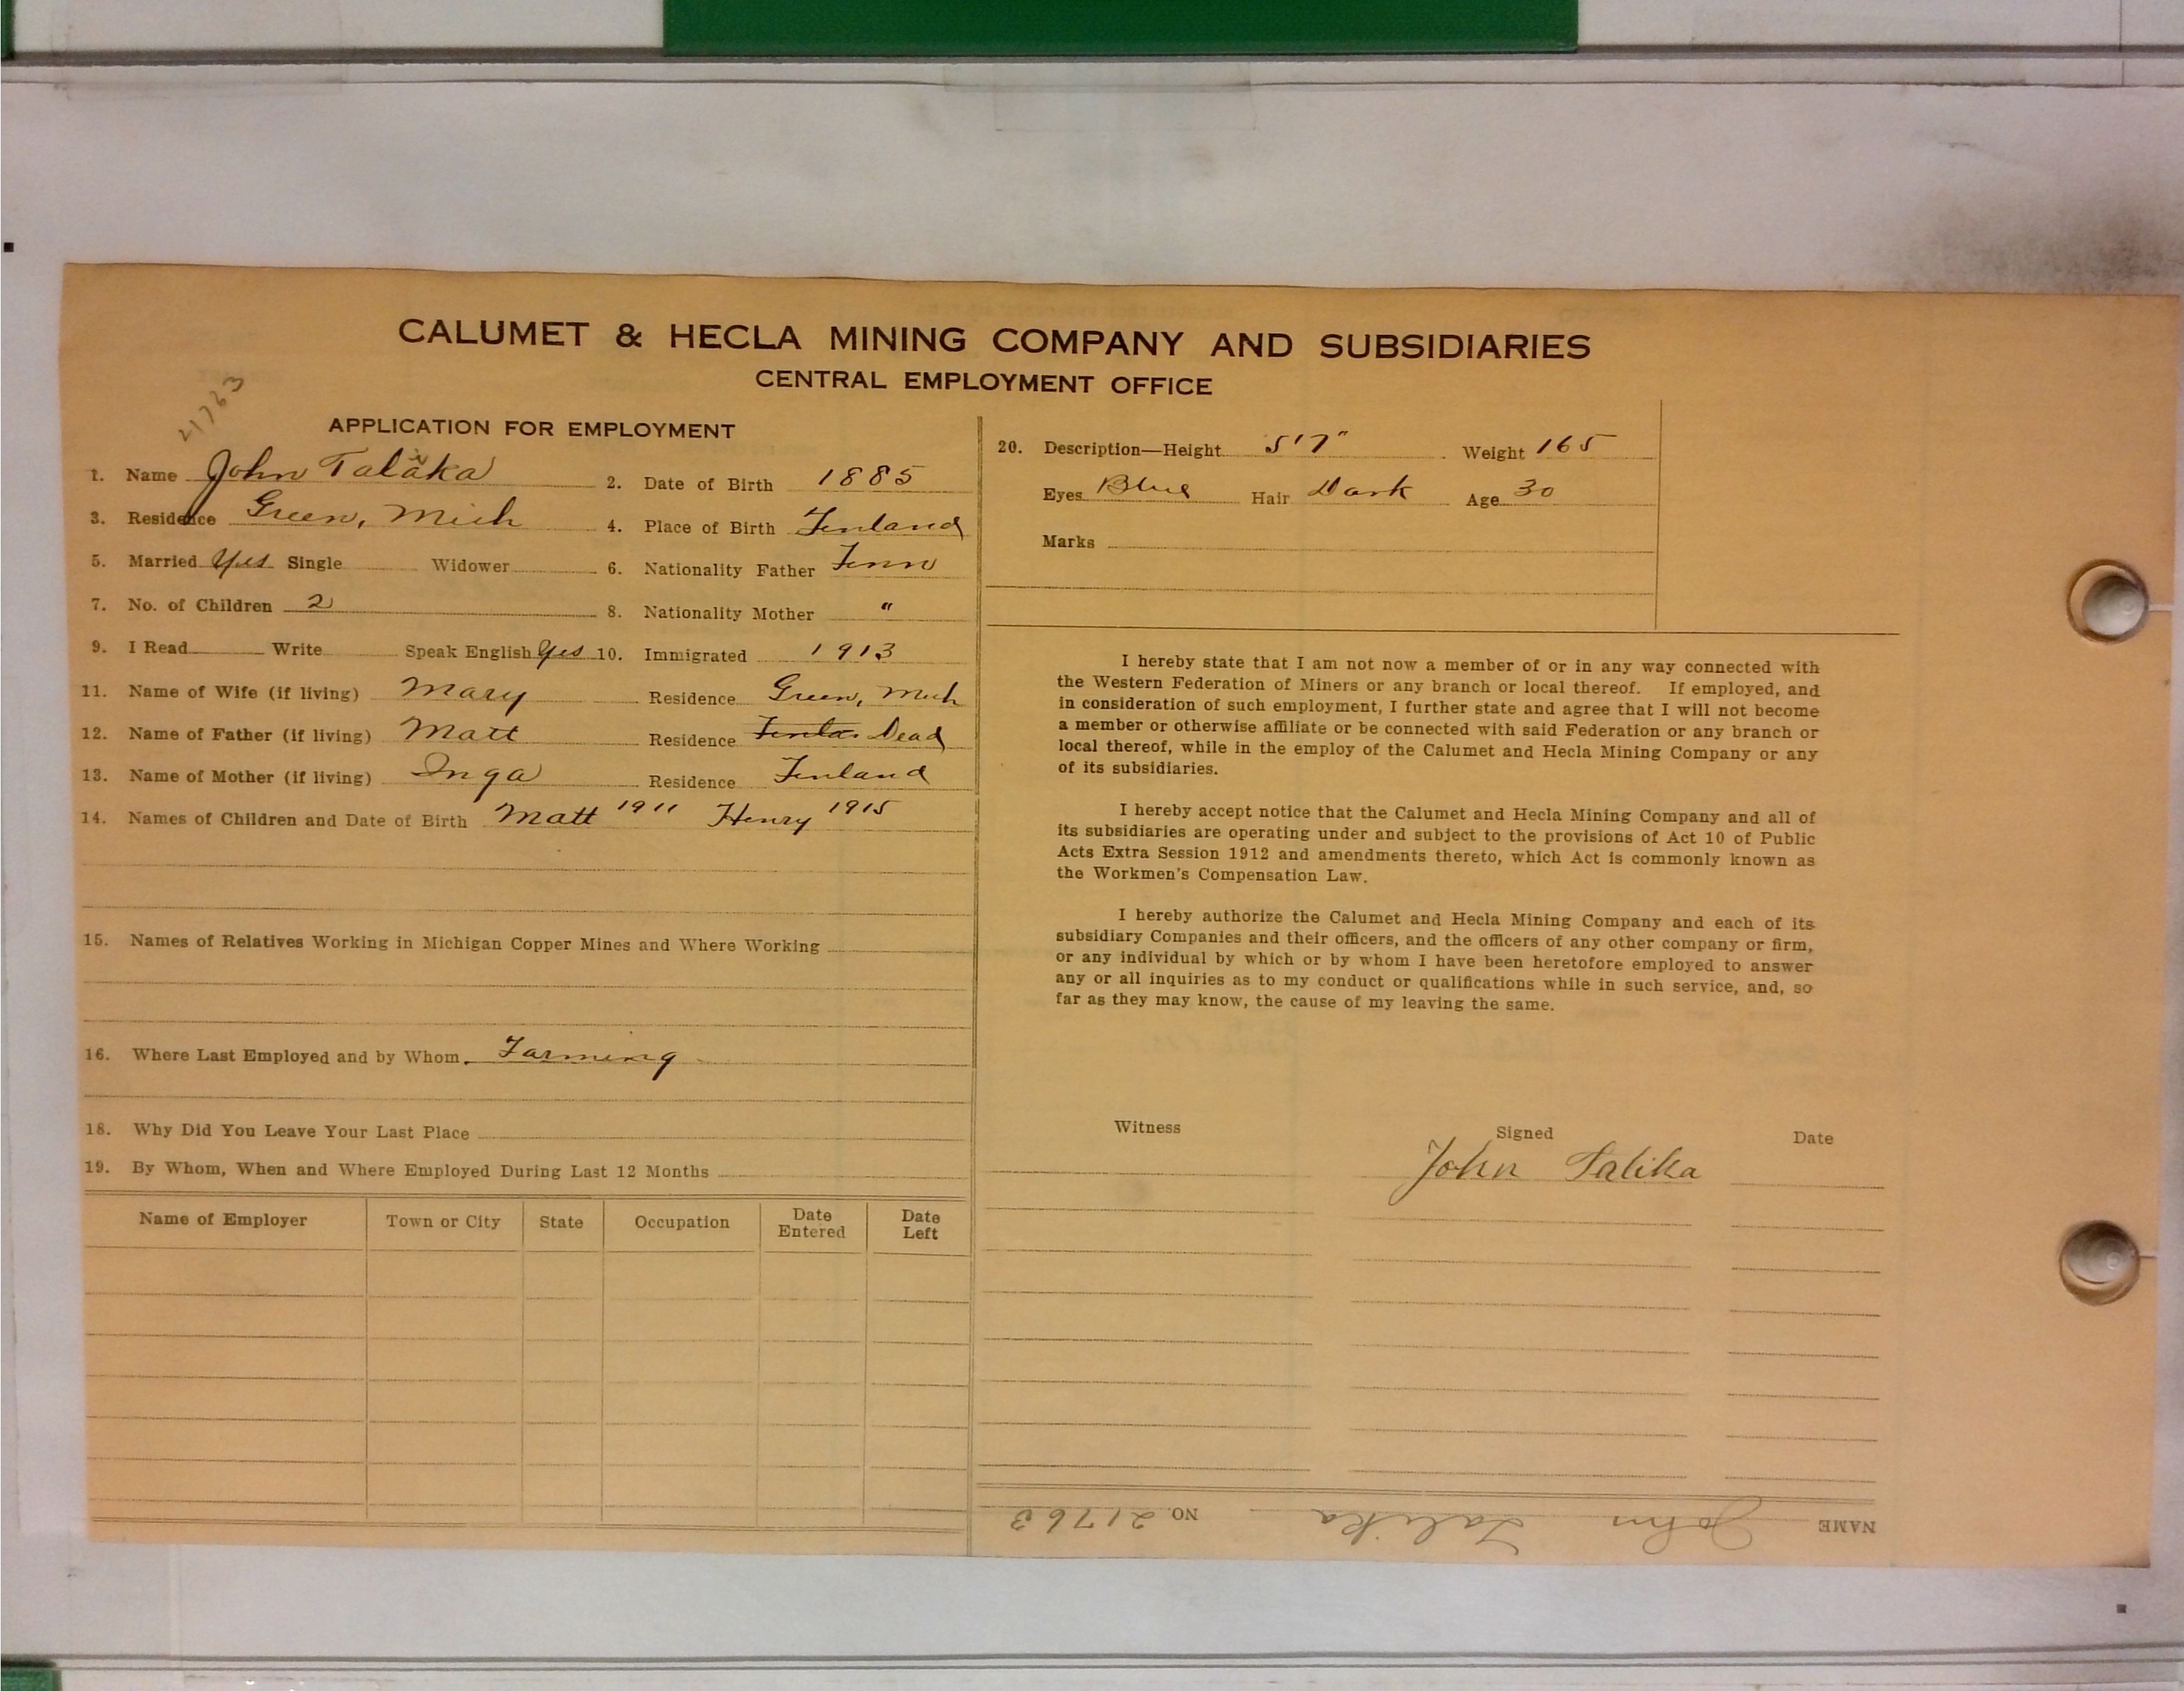 CALUMET & HECLA MINING COMPANY AND SUBSIDIARIES
CENTRAL EMPLOYMENT OFFICE
21763
APPLICATION FOR EMPLOYMENT
1. Name John Talaka i 2. Date of Birth 1885
3. Residence Green, Mich 4. Place of Birth Finland
5. Married Yes Single Widower 6. Nationality Father Finn
7. No. of Children 2 8. Nationality Mother "
9. I Read Write Speak English Yes 10. Immigrated 1913
11. Name of Wife (if living) Mary Residence Green, Mich
12. Name of Father (if living) Matt Residence Dead
13. Name of Mother (if living) Inga Residence Finland
14. Names of Children and Date of Birth Matt 1911 Henry 1915
15. Names of Relatives Working in Michigan Copper Mines and Where Working
16. Where Last Employed and by Whom. Farming
18. Why Did You Leave Your Last Place
19. By Whom, When and Where Employed During Last 12 Months
Name of Employer Town or City State Occupation Date Entered Date Left
20. Description—Height 5'7" Weight 165
Eyes Blue Hair Dark Age 30
Marks
I hereby state that I am not now a member of or in any way connected with
the Western Federation of Miners or any branch or local thereof. If employed, and
in consideration of such employment, I further state and agree that I will not become
a member or otherwise affiliate or be connected with said Federation or any branch or
local thereof, while in the employ of the Calumet and Hecla Mining Company or any
of its subsidiaries.
I hereby accept notice that the Calumet and Hecla Mining Company and all of
its subsidiaries are operating under and subject to the provisions of Act 10 of Public
Acts Extra Session 1912 and amendments thereto, which Act is commonly known as
the Workmen's Compensation Law.
I hereby authorize the Calumet and Hecla Mining Company and each of its
subsidiary Companies and their officers, and the officers of any other company or firm,
or any individual by which or by whom I have been heretofore employed to answer
any or all inquiries as to my conduct or qualifications while in such service, and, so
far as they may know, the cause of my leaving the same.
Witness Signed Date
John Talika
NAME John Talika NO. 21763